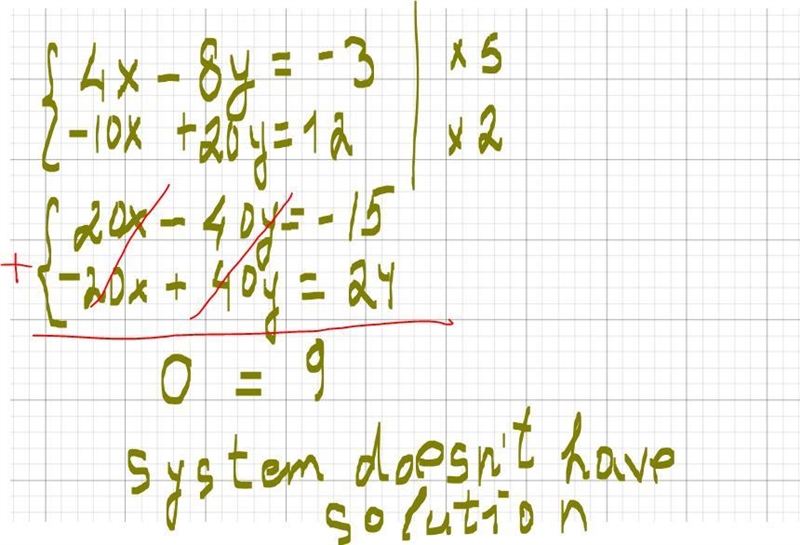 4x - 8y = -3 | × 5
-10x + 20y = 12 | × 2
20x - 40y = -15
+ -20x + 40y = 24
0 = 9
system doesn't have
solution